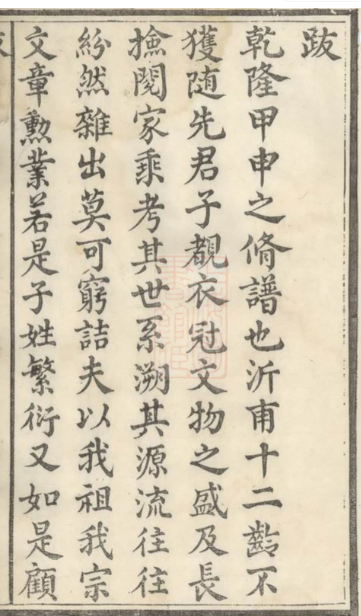 跋
乾隆甲申之脩譜也沂甫十二齡不
獲随先君子覩衣冠文物之盛及長
撿閱家乘考其世系溯其源流往往
紛然雜出莫可窮詰夫以我祖我宗
文章勲業若是子姓繁衍又如是顧